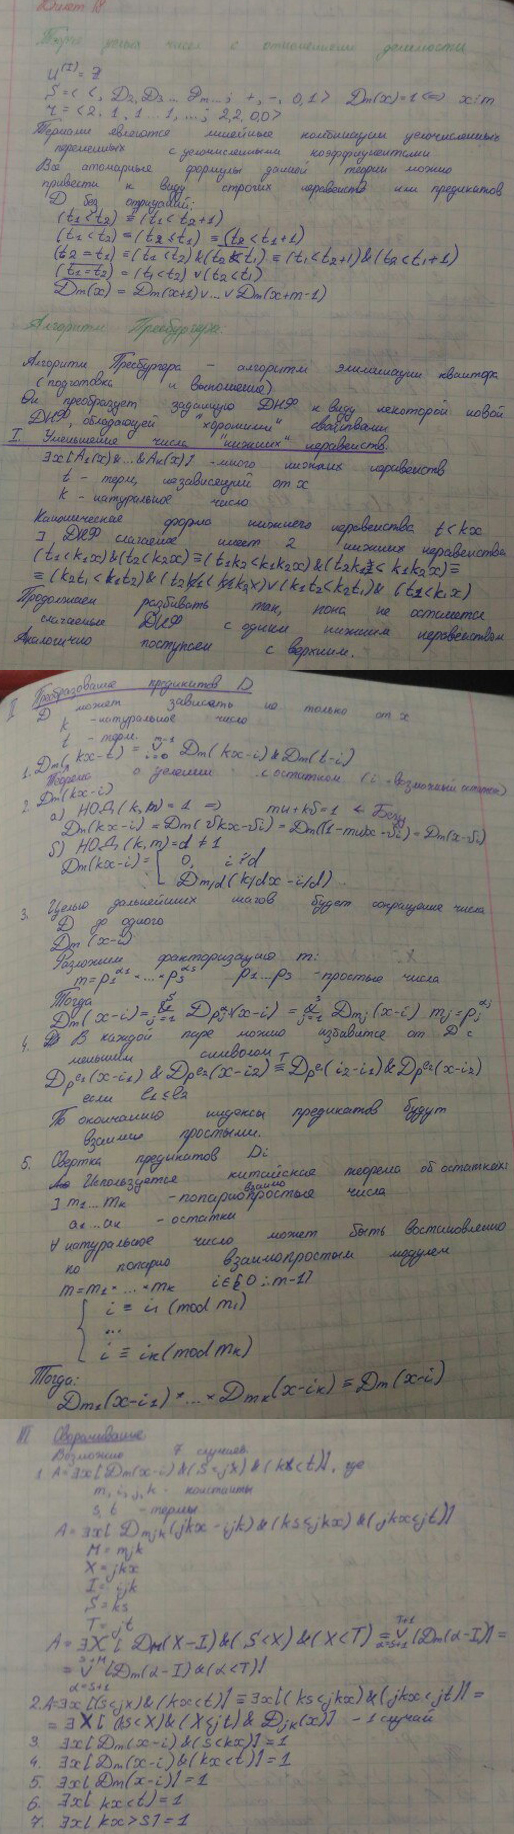 Билет 18
Теория целых чисел с отношением делимости
U^(I) = Z
S = < <, D2, D3 ... Dm ...; +, -, 0, 1 > Dm(x)=1 <=> x⋮m
η = < 2, 1, 1 ... 1, ...; 2, 2, 0, 0 >
Термами являются линейные комбинации целочисленных
переменных с целочисленными коэффициентами
Все атомарные формулы данной теории можно
привести к виду строгих неравенств или предикатов
D без отрицаний:
(t1 ≤ t2) ≡ (t1 < t2+1)
(t1 < t2) = (t2 ≤ t1) ≡ (t2 < t1+1)
(t2 = t1) ≡ (t1 ≤ t2) & (t2 ≤ t1) ≡ (t1 < t2+1) & (t2 < t1+1)
(t1 = t2) = (t1 < t2) ∨ (t2 < t1)
Dm(x) = Dm(x+1) ∨ ... ∨ Dm(x+m-1)
Алгоритм Пресбургера:
Алгоритм Пресбургера - алгоритм элиминации квантора
(подготовка и выполнение)
Он преобразует заданную ДНФ к виду некоторой новой
ДНФ, обладающей "хорошими" свойствами
I. Уменьшение числа "нижних" неравенств.
∃x[A1(x) & ... & Ak(x)] - много нижних неравенств
t - терм, независящий от x
k - натуральное число
Каноническая форма нижнего неравенства t < kx
∃ ДНФ слагаемое имеет 2 нижних неравенства
(t1 < k1x) & (t2 < k2x) ≡ (t1k2 < k1k2x) & (t2k1 < k1k2x) ≡
Продолжаем разбивать так, пока не останется
слагаемые ДНФ с одним нижним неравенством
Аналогично поступаем с верхним.
II Преобразование предикатов D
D может зависеть не только от x
k - натуральное число
t - терм.
1. Dm(kx-t) = ∨ i=0 m-1 Dm(kx-i) & Dm(t-i)
Теорема о делении с остатком (i - возможный остаток)
2. Dm(kx-i)
а) НОД(k,m) = 1 => mu+kv=1 ← Безу
Dm(kx-i) = Dm(vkx-vi) = Dm((1-mu)x-vi) = Dm(x-vi)
б) НОД(k,m) = d ≠ 1
Dm(kx-i) = { 0, i⋮̸d
Dm/d(k/dx - i/d)
3. Целью дальнейших шагов будет сокращение числа
D до одного
Dm(x-i)
Разложим факторизацию m:
m = p1^α1 · ... · ps^αs p1...ps - простые числа
Тогда
Dm(x-i) = & j=1 s Dpj^αj(x-i) = & j=1 s Dmj(x-i) mj = pj^αj
4. В каждой паре можно избавится от D с
меньшим символом
Dp^e1(x-i1) & Dp^e2(x-i2) ≡ Dp^e1(i2-i1) & Dp^e2(x-i2)
если e1 ≤ e2
По окончанию индексы предикатов будут
взаимно простыми.
5. Свертка предикатов Di
Используется китайская теорема об остатках:
∃ m1...mk - попарно взаимно простые числа
a1...ak - остатки
∀ натуральное число может быть востановленно
по попарно взаимопростым модулем
m = m1 · ... · mk i ∈ [0; m-1]
{ i ≡ i1 (mod m1)
...
i ≡ ik (mod mk)
Тогда:
Dm1(x-i1) · ... · Dmk(x-ik) ≡ Dm(x-i)
III Сворачивание
Возможно 7 случаев.
1. A = ∃x[Dm(x-i) & (s < jx) & (kx < t)], где
m, i, j, k - константы
s, t - термы
A = ∃x[Dmjk(jkx - ijk) & (ks < jkx) & (jkx < jt)]
M = mjk
X = jkx
I = ijk
S = ks
T = jt
2. A = ∃x[(s < jx) & (kx < t)] ≡ ∃x[(ks < jkx) & (jkx < jt)] =
= ∃X[(ks < X) & (X < jt) & Djk(x)] - 1 случай
3. ∃x[Dm(x-i) & (s < kx)] = 1
4. ∃x[Dm(x-i) & (kx < t)] = 1
5. ∃x[Dm(x-i)] = 1
6. ∃x[kx < t] = 1
7. ∃x[kx > s] = 1